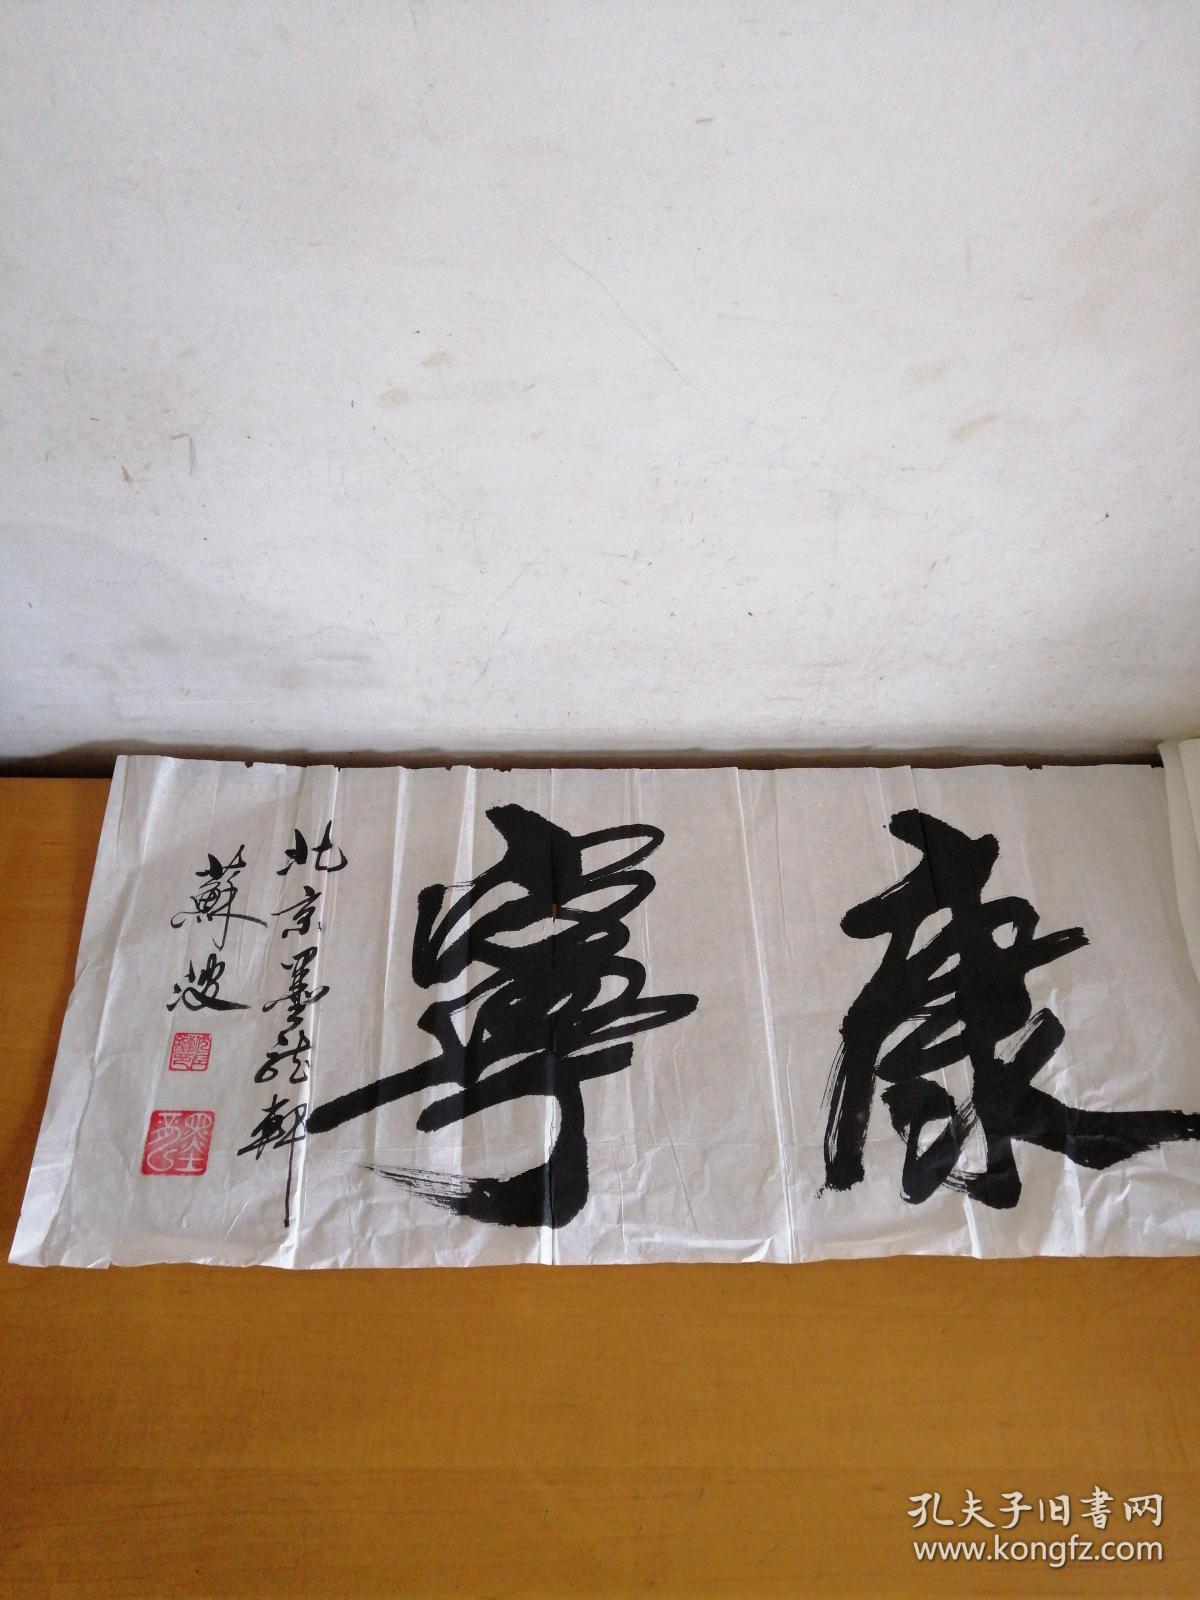 康寧
北京墨龍軒
蘇波
孔夫子旧书网
www.kongfz.com